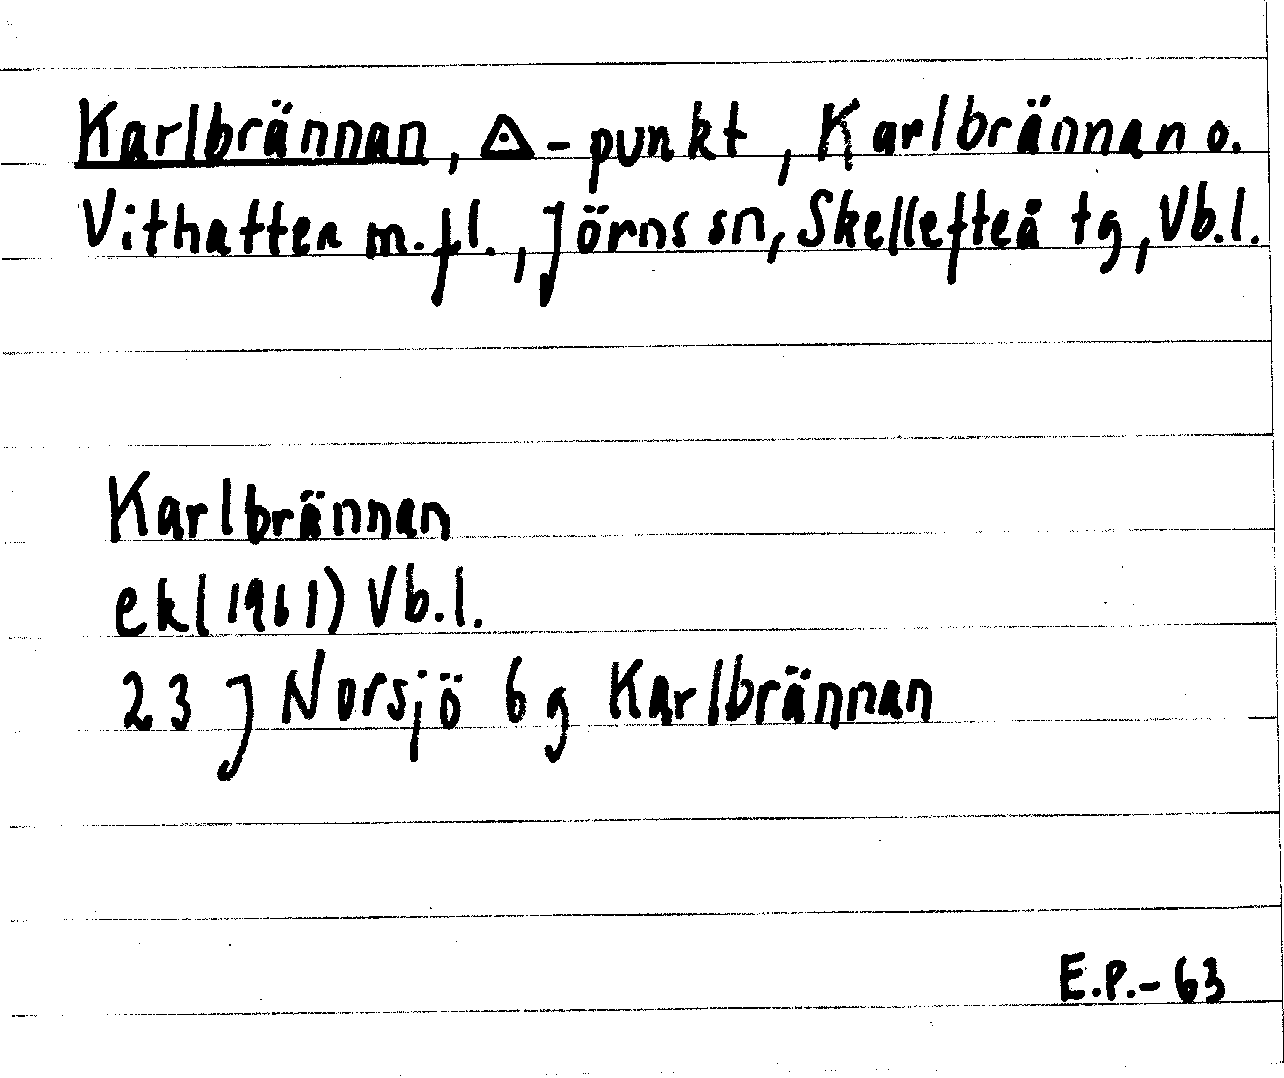 Karlbrännan, ◬-punkt, Karlbrännan o.
Vithatten m.fl., Jörns sn, Skellefteå tg, Vb.l.
Karlbrännan
ek(1961) Vb.l.
23 J Norsjö 6g Karlbrännan
E.P.-63